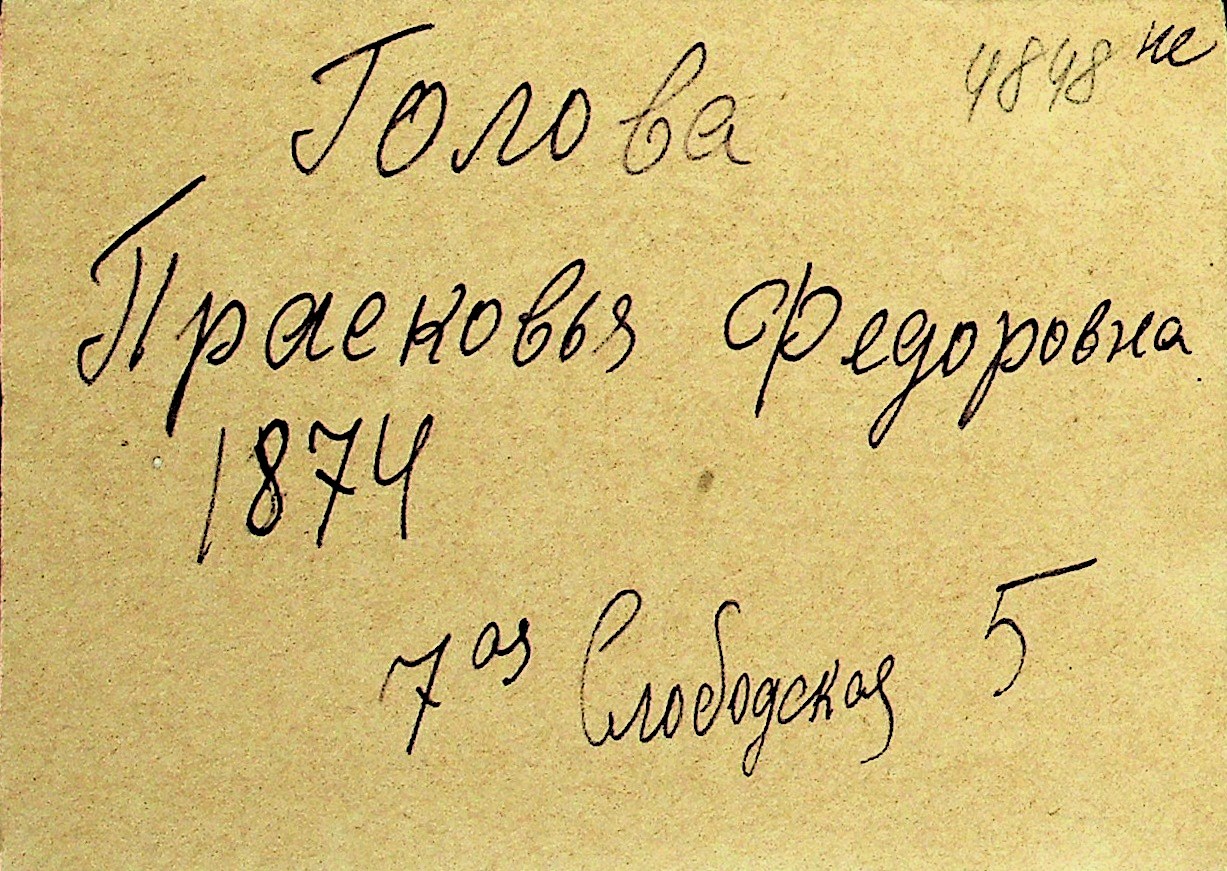 4848 не
Голова
Прасковья Федоровна
1874
7ая Слободская 5